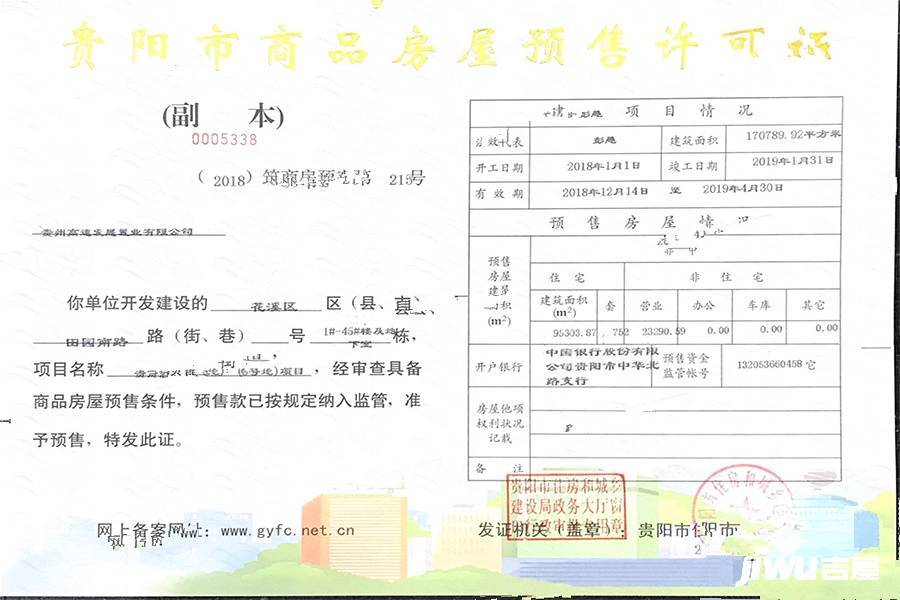 贵阳市商品房屋预售许可证
(副 本)
0005338
(2018) 筑商房预 215号
贵州高速发展置业有限公司
你单位开发建设的 花溪区 区(县、市)、
田园南路 路(街、巷) 号 1#-45#楼及地下室 栋,
项目名称 项目,经审查具备
商品房屋预售条件,预售款已按规定纳入监管,准
予预售,特发此证。
网上备案网址:www.gyfc.net.cn
项目情况
彭飚 建筑面积 170789.92平方米
开工日期 2018年1月1日 竣工日期 2019年1月31日
有效期 2018年12月14日 至 2019年4月30日
预售房屋情况
预售房屋建筑面积(m²)
住宅 非住宅
建筑面积(m²) 套 营业 办公 车库 其它
95303.87 752 23290.59 0.00 0.00 0.00
开户银行 中国银行股份有限公司贵阳市中华北路支行 预售资金监管帐号 132053660458
房屋他项权利状况记载
备 注
贵阳市住房和城乡
建设局政务大厅窗
口行政审批专用章
发证机关(盖章):贵阳市住
jiwu吉屋